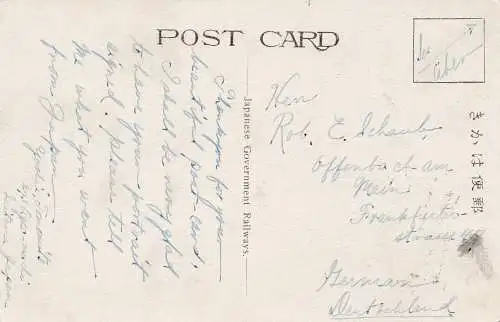 POST CARD
Thank you for your
beautiful post card.
I shall be very glad
to have your portrait
signed. please tell
me what you want
from Japan.
Japanese Government Railways.
Herr
Rob. E. Schaub
Offenbach am
Main
Frankfurter
strasse
Germany
Deutschland
きかは便郵